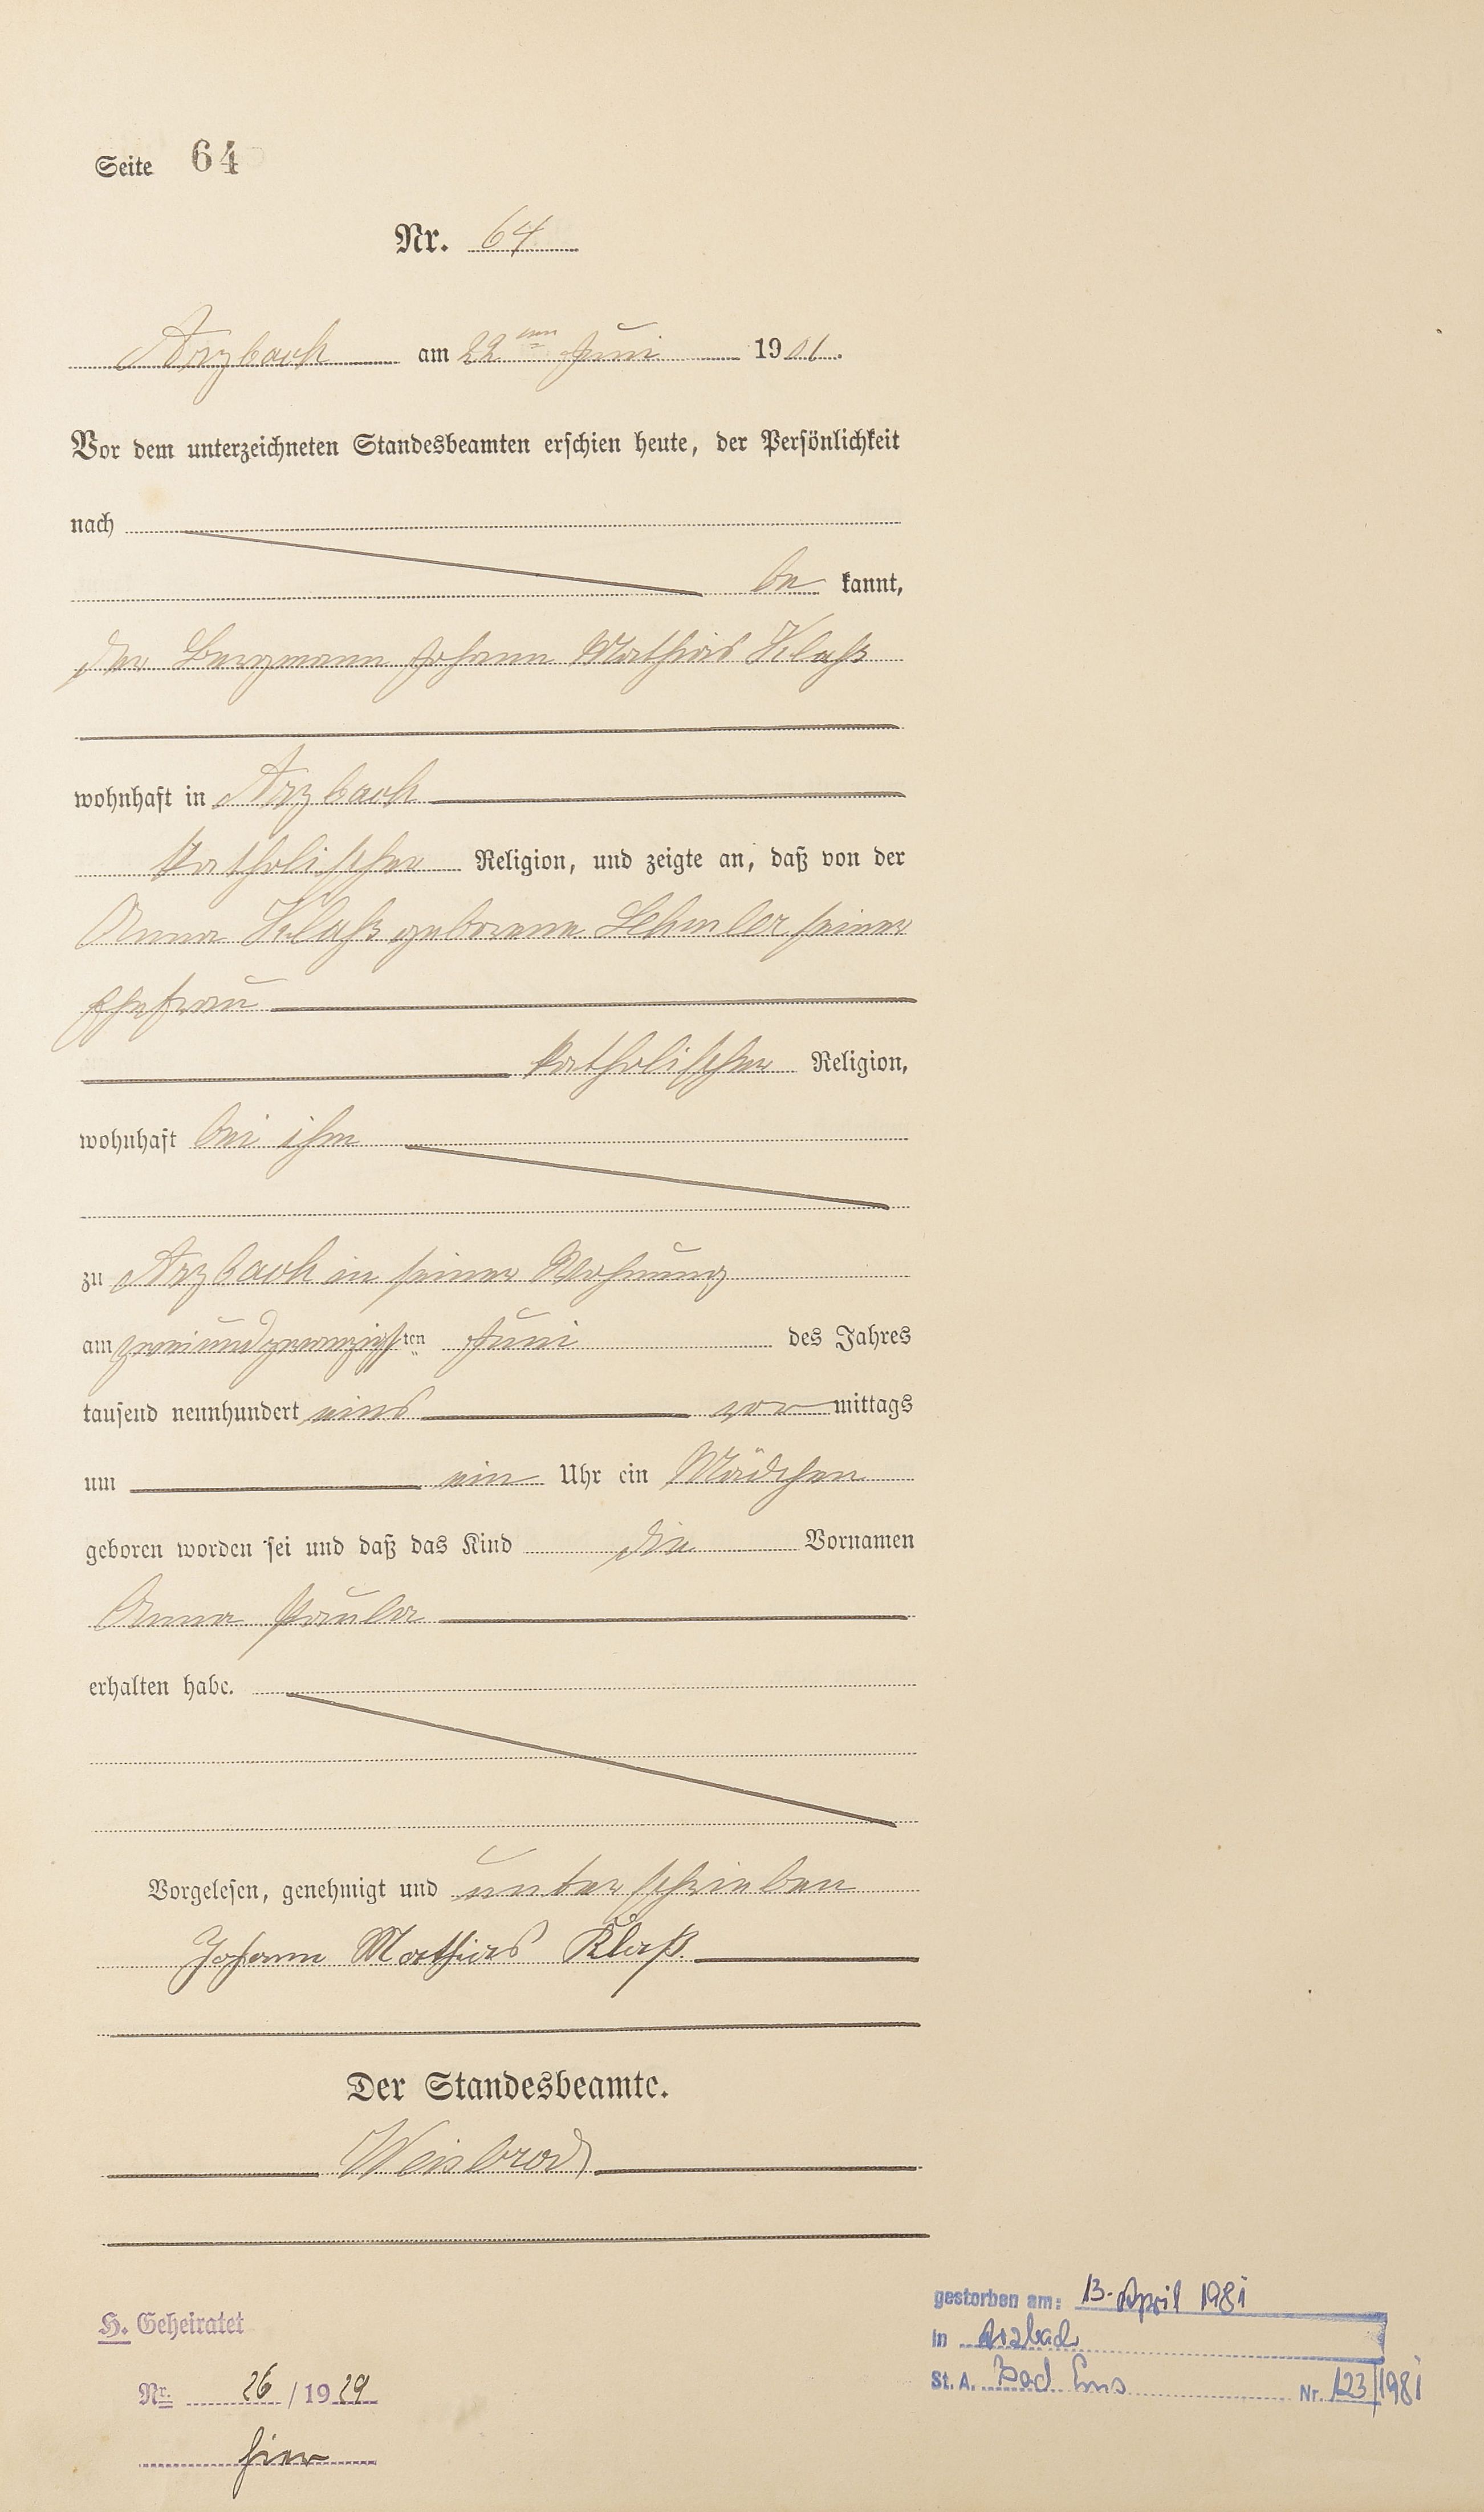 Seite 64
Nr. 64
Arzbach am 22ten Juni 1901.
Vor dem unterzeichneten Standesbeamten erschien heute, der Persönlichkeit
nach
be kannt,
der Bergmann Johann Mathias Klaß
wohnhaft in Arzbach
katholischer Religion, und zeigte an, daß von der
Anna Klaß geborene Lehmler seiner
Ehefrau
katholischer Religion,
wohnhaft bei ihm
zu Arzbach in seiner Wohnung
am zweiundzwanzigsten Juni des Jahres
tausend neunhundert eins vor mittags
um ein Uhr ein Mädchen
geboren worden sei und daß das Kind die Vornamen
Anna Paula
erhalten habe.
Vorgelesen, genehmigt und unterschrieben
Johann Mathias Klaß
Der Standesbeamte.
Weisbrod
H. Geheiratet
Nr. 26 / 1929
hier
gestorben am: 13. April 1981
in Arzbach
St. A. Bad Ems Nr. 123/1981